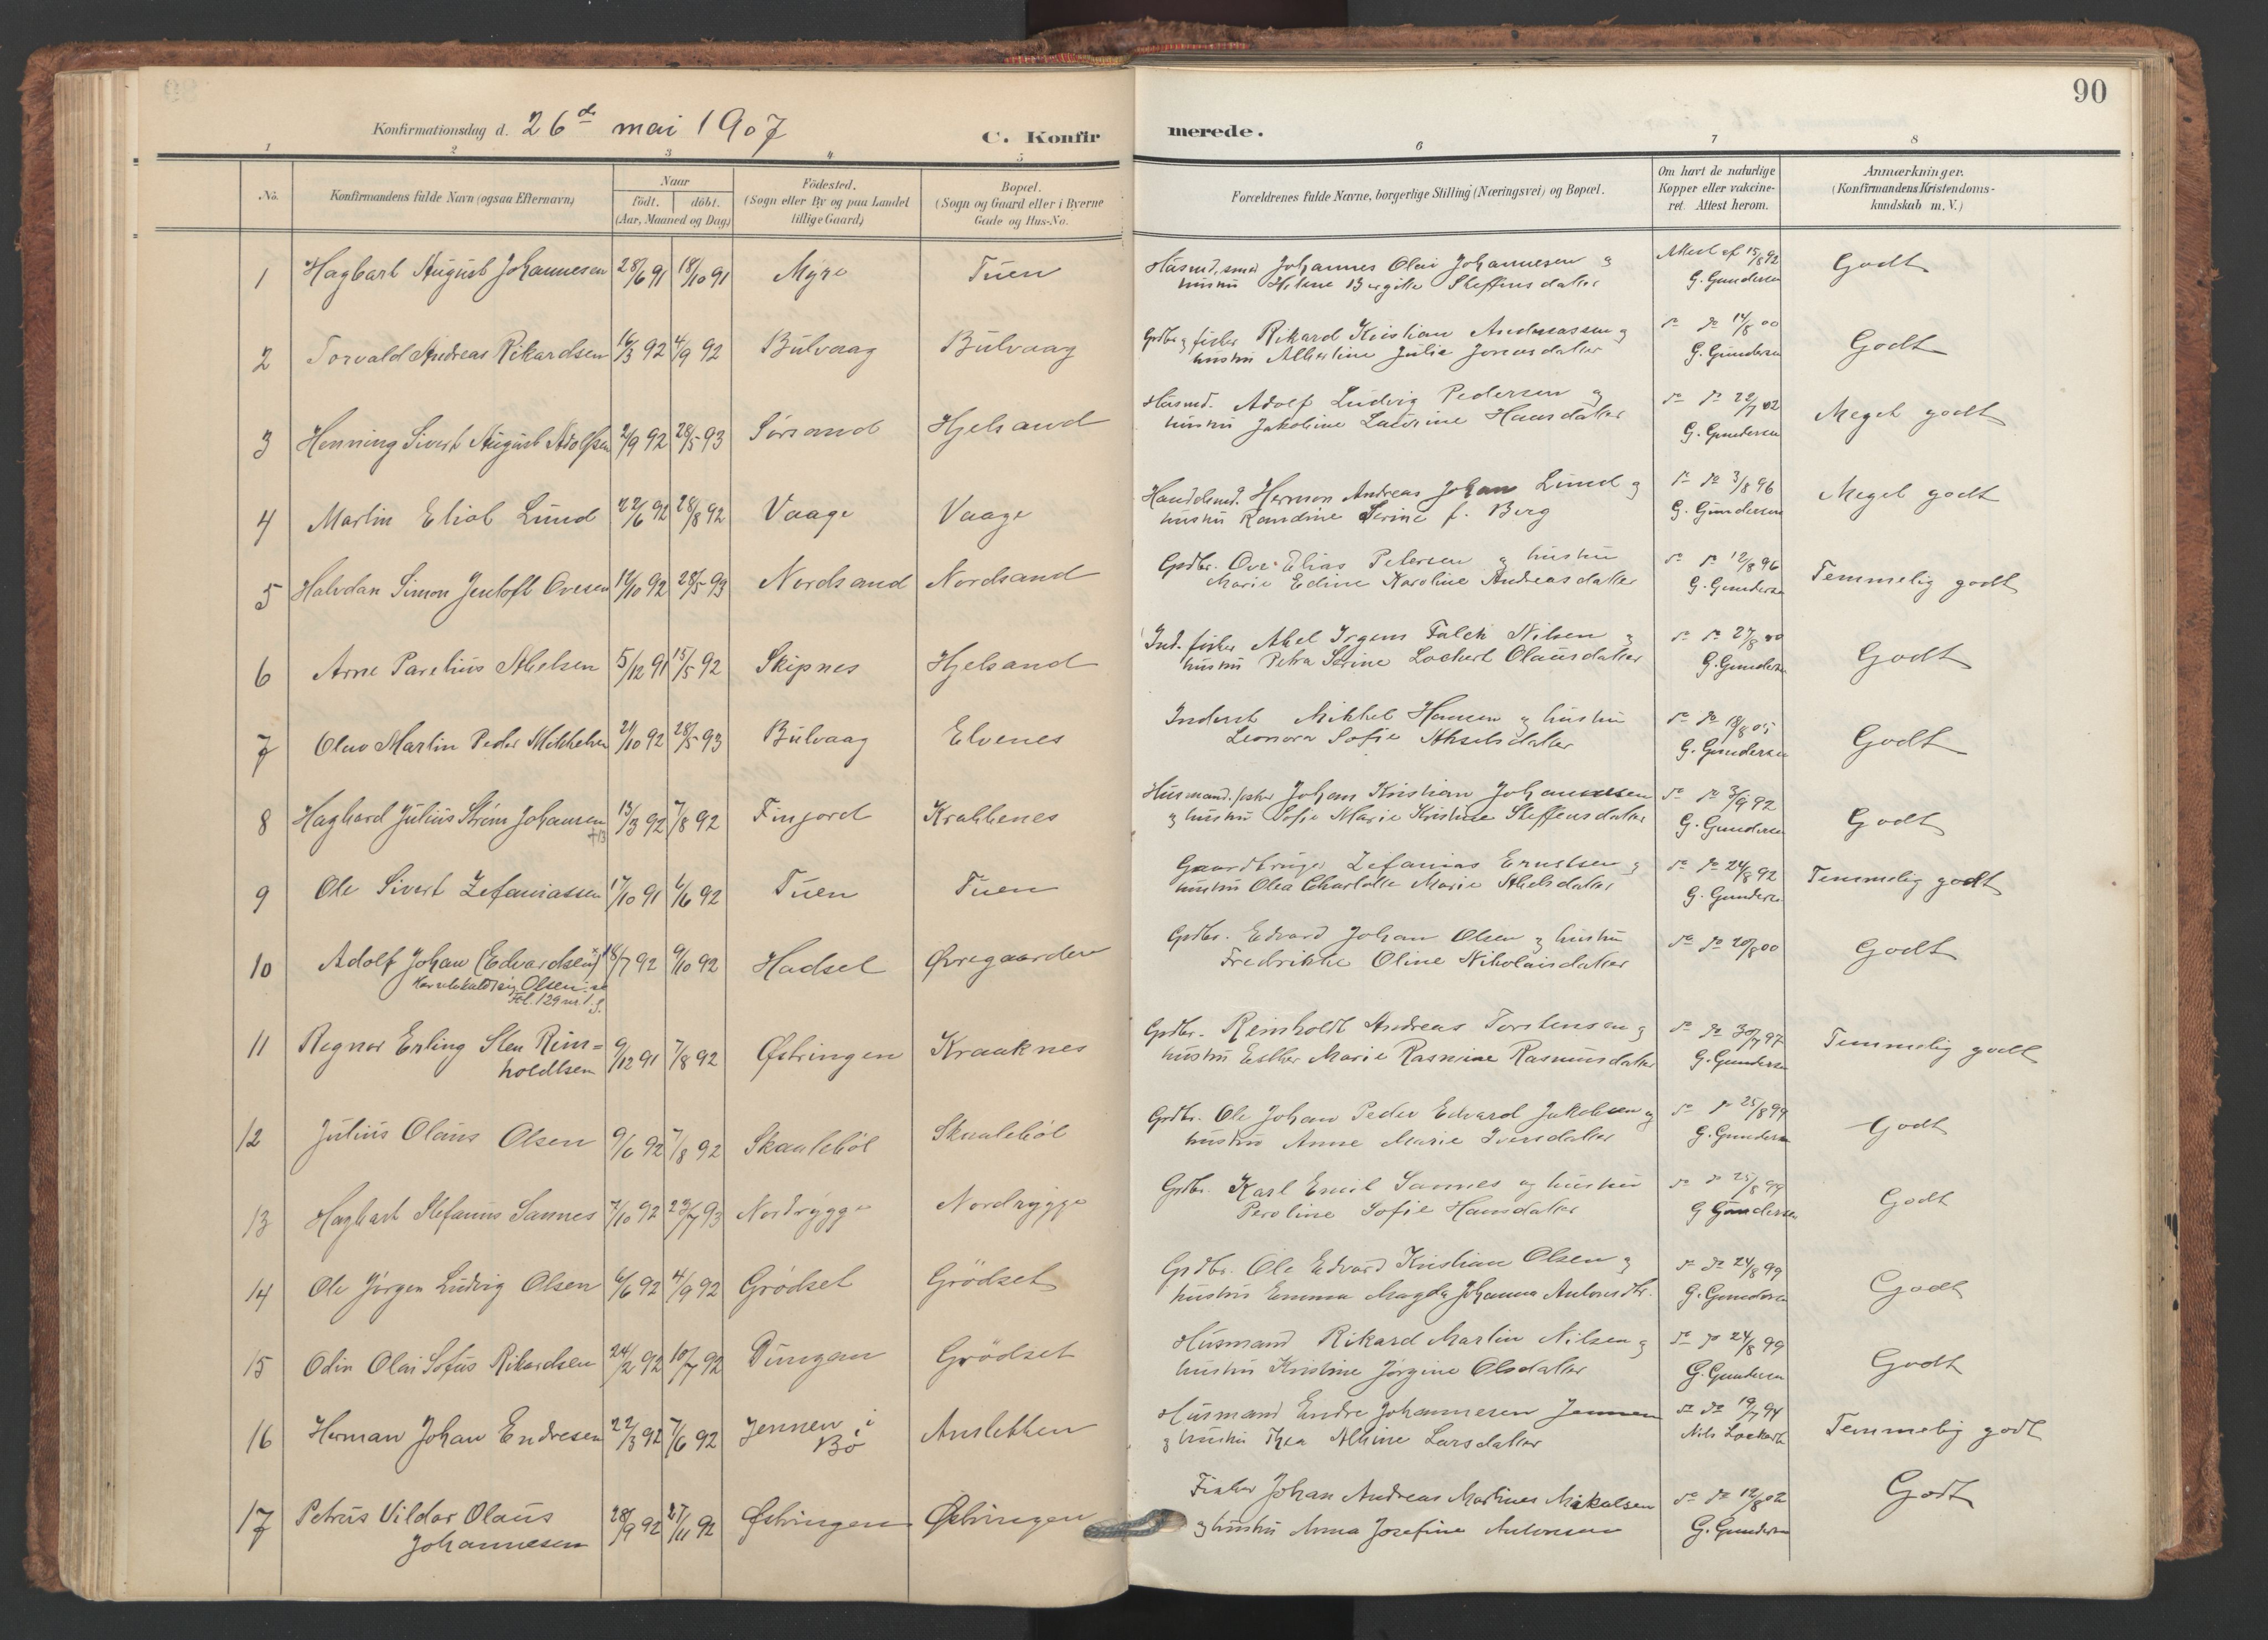 90
Konfirmationsdag d. 26de mai 1907
C. Konfirmerede.
1 2 3 4 5 6 7 8
No.
Konfirmandens fulde Navn (ogsaa Efternavn)
Naar
født. døbt.
(Aar, Maaned og Dag)
Födested.
(Sogn eller By og paa Landet
tillige Gaard)
Bopæl.
(Sogn og Gaard eller i Byerne
Gade og Hus-No.
Forældrenes fulde Navne, borgerlige Stilling (Næringsvei) og Bopæl.
Om havt de naturlige
Kopper eller vakcine-
ret. Attest herom.
Anmærkninger.
(Konfirmandens Kristendoms-
kundskab m. V.)
1 Hagbart August Johannesen 28/6 91 18/10 91 Myre Tuen
Johannes Olai Johannesen og
hustru Helene Bergitte Steffensdatter
Attest af 15/8 92
G. Gundersen
Godt
2 Torvald Andreas Rikardsen 16/3 92 4/9 92 Bulvaag Bulvaag
Grdbr. og fisker Rikard Kristian Andreassen og
hustru Albertine Julie Jonasdatter
do do 14/8 00
G. Gundersen
Godt
3 Henning Sivert August Adolfsen 2/9 92 28/5 93 Sørsand Hjelsand
Husmd. Adolf Ludvig Pedersen og
hustru Jakobine Laurine Hansdatter
do do 22/7 02
G. Gundersen
Meget godt
4 Martin Eliot Lund 22/6 92 28/8 92 Vaage Vaage
Handelsmd. Herman Andreas Johan Lund og
hustru Randine Serine f. Berg
do do 3/8 96
G. Gundersen
Meget godt
5 Halvdan Simon Jentoft Ovesen 12/10 92 28/5 93 Nordsand Nordsand
Grdbr. Ove Elias Petersen og hustru
Marie Edine Karoline Andreasdatter
do do 12/8 96
G. Gundersen
Temmelig godt
6 Arne Parelius Abelsen 5/12 91 15/5 92 Skipnes Hjelsand
Ind. fisker Abel Irgens Falch Nilsen og
hustru Petra Serine Lockert Olausdatter
do do 27/8 00
G. Gundersen
Godt
7 Olav Martin Peder Mikkelsen 21/10 92 28/5 93 Bulvaag Elvenes
Inderst Mikkel Hansen og hustru
Leonora Sofie Akselsdatter
do do 18/8 05
G. Gundersen
Godt
8 Hagbard Julius Strøm Johansen 13/3 92 7/8 92 Finjord Krabbenes
Husmand. fisker Johan Kristian Johannesen
og hustru Sofie Marie Kristine Steffensdatter
do do 3/9 92
G. Gundersen
Godt
9 Ole Sivert Zefaniassen 17/10 91 6/6 92 Tuen Tuen
Gaardbruger Zefanias Ernstsen og
hustru Olea Charlotte Marie Abelsdatter
do do 24/8 92
G. Gundersen
Temmelig godt
10 Adolf Johan (Edvardsen)x 18/7 92 9/10 92 Hadsel Øvregaarden
Olsen: se
Fol. 129 nr. 1.
Grdbr. Edvard Johan Olsen og hustru
Fredrikke Oline Nikolaisdatter
do do 20/8 00
Godt
11 Regnor Erling Sten Rein=
holdtsen 9/12 91 7/8 92 Østringen Kraaknes
Grdbr. Reinholdt Andreas Torstensen og
hustru Esther Marie Rasmine Rasmusdatter
do do 30/7 97
G. Gundersen
Temmelig godt
12 Julius Olaus Olsen 9/6 92 7/8 92 Skaalebøl Skaalebøl
Grdbr. Ole Johan Peder Edvard Jakobsen og
hustru Anne Marie Iversdatter
do do 25/8 99
G. Gundersen
Godt
13 Hagbart Stefanus Sannes 7/10 92 23/7 93 Nordrygge Nordrygge
Grdbr. Karl Emil Sannes og hustru
Peroline Sofie Hansdatter
do do 25/8 99
G Gundersen
Godt
14 Ole Jørgen Ludvig Olsen 6/6 92 4/9 92 Grödset Grödset
Grdbr. Ole Edvard Kristian Olsen og
hustru Emma Magda Johanna Antonsdtr.
do do 24/8 99
G. Gundersen
Godt
15 Odin Olai Sofus Rikardsen 24/2 92 10/7 92 Dungan Grödset
Husmand Rikard Martin Nilsen og
hustru Kristine Jørgine Olsdatter
do do 24/8 99
G. Gundersen
Godt
16 Herman Johan Endresen 22/3 92 7/6 92 Jennen i
Bø
Ansletten
Husmand Endre Johannesen Jennen
og hustru Thea Albine Larsdatter
do do 19/7 94
Nils Lockert
Temmelig godt
17 Petrus Vildar Olaus
Johannesen 28/9 92 27/11 92 Østringen Østringen
Fisker Johan Andreas Martinus Mikalsen
og hustru Anna Josefine Antonsen
do do 12/8 02
G. Gundersen
Godt